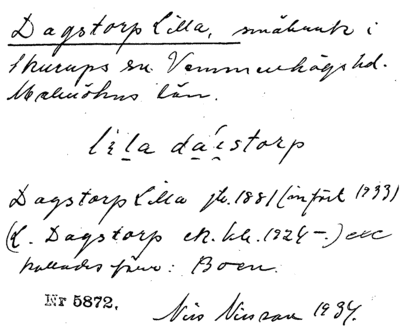 Dagstorp Lilla, småbruk i
Skurups sn. Vemmenhögs hd.
Malmöhus län.
lila dáistorp
Dagstorp Lilla jb. 1881 (infört 1933)
(L. Dagstorp ek. kk. 1924–)
kallades förr: Boen.
Nr 5872.
Nils Nilsson 1934.